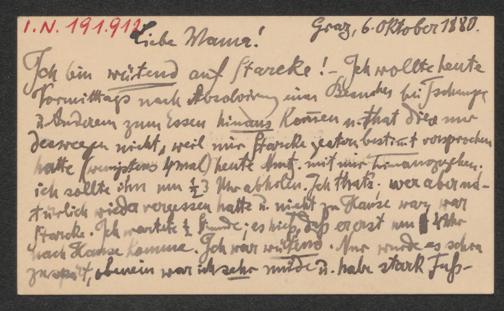 I.N. 191.912
Graz, 6. Oktober 1880.
Liebe Mama!
Ich bin wütend auf Starcke! – Ich wollte heute
Vormittags nach Absolvierung eines Besuches bei
u. Anderem zum Essen hinaus kommen u. that dies nur
deswegen nicht, weil mir Starcke gestern bestimmt versprochen
hatte (wenigstens 4 mal) heute Nmt. mit mir hinauszugehen.
ich sollte ihn um ½3 Uhr abholen. Ich that's. wer aber na-
türlich wieder vergessen hatte u. nicht zu Hause war, war
Starcke. Ich wartete ½ Stunde; es hieß, daß er erst um 4 Uhr
nach Hause komme. Ich war wütend. Nur wurde es schon
zu spät, obenein war ich sehr müde u. habe stark Fuß-